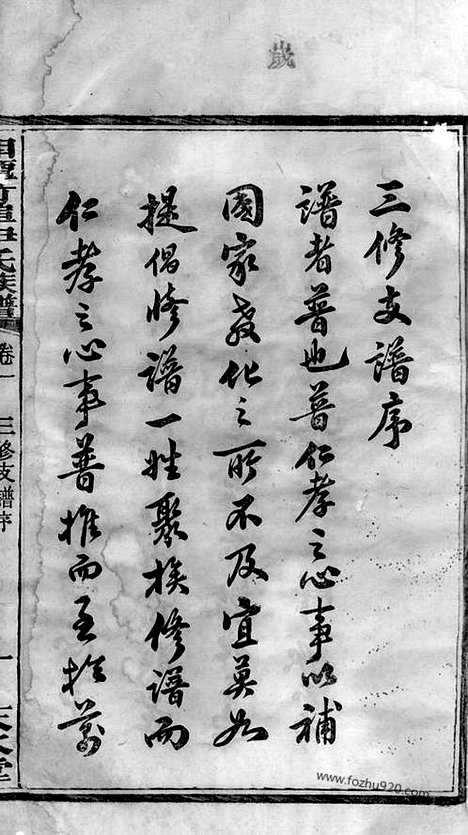 歲
三修支譜序
譜者普也普仁孝之心事以補
國家教化之所不及宜莫如
提倡修譜一姓聚族修譜而
仁孝之心事普推而至於萬
氏族譜
卷一
三修支譜序
一
堂
www.fozhu920.com